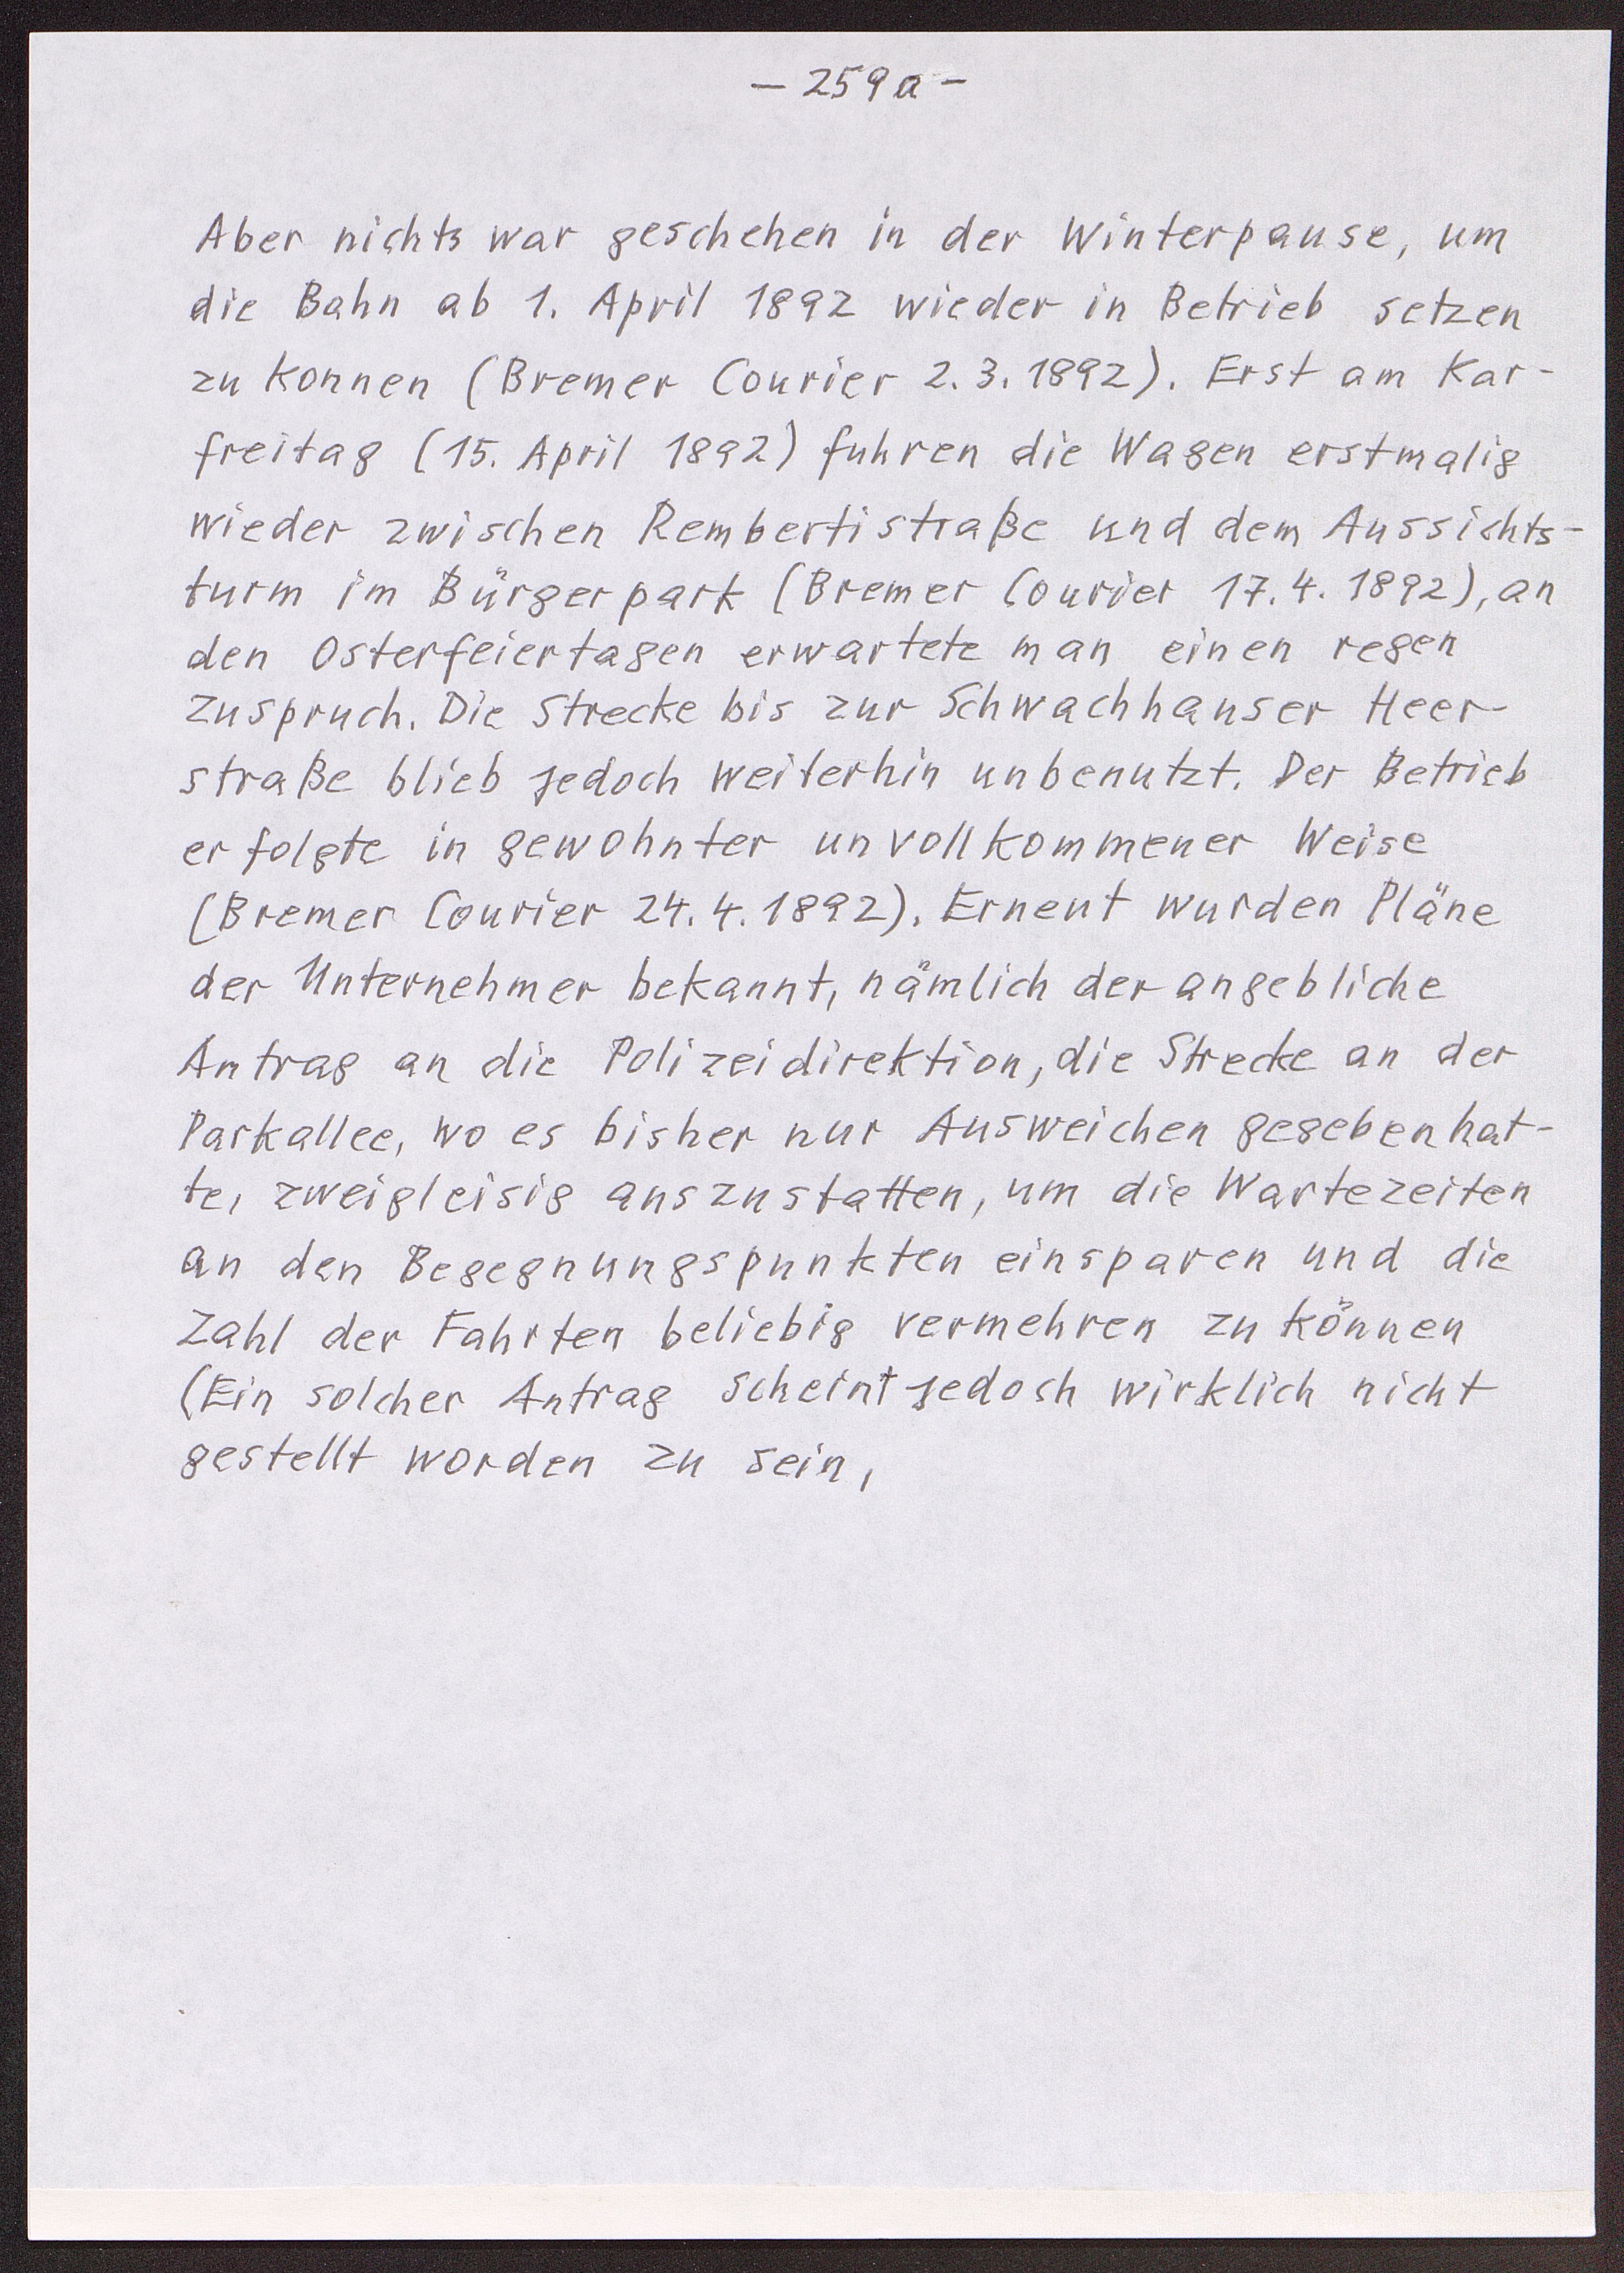 – 259a –
Aber nichts war geschehen in der Winterpause, um
die Bahn ab 1. April 1892 wieder in Betrieb setzen
zu konnen (Bremer Courier 2.3.1892). Erst am Kar-
freitag (15. April 1892) fuhren die Wagen erstmalig
wieder zwischen Rembertistraße und dem Aussichts-
turm im Bürgerpark (Bremer Courier 17.4.1892), an
den Osterfeiertagen erwartete man einen regen
Zuspruch. Die Strecke bis zur Schwachhauser Heer-
straße blieb jedoch weiterhin unbenutzt. Der Betrieb
erfolgte in gewohnter unvollkommener Weise
(Bremer Courier 24.4.1892). Erneut wurden Pläne
der Unternehmer bekannt, nämlich der angebliche
Antrag an die Polizeidirektion, die Strecke an der
Parkallee, wo es bisher nur Ausweichen gegeben hat-
te, zweigleisig auszustatten, um die Wartezeiten
an den Begegnungspunkten einsparen und die
Zahl der Fahrten beliebig vermehren zu können
(Ein solcher Antrag scheint jedoch wirklich nicht
gestellt worden zu sein,